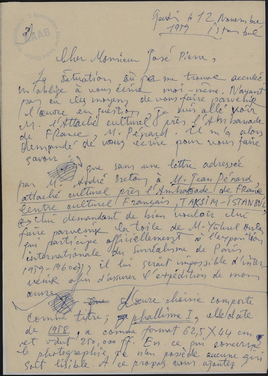 le 12 Novembre
1959 Istanbul
Cher Monsieur José Pierre,
La situation où je me trouve acculée
m'oblige à vous écrire moi-même. N'ayant
pas eu les moyens de vous faire parvenir
l'œuvre en question, je suis allé voir
M. l'Attaché culturel près l'Ambassade
de France, M. Pénard. Il m'a alors
demandé de vous écrire pour vous faire
savoir
que sans une lettre adressée
par M. André Breton à M. Jean Pénard
attaché culturel près l'Ambassade de France
Centre culturel Français, TAKSIM - ISTANBUL
lui demandant de bien vouloir lui
faire parvenir la toile de M. Yüksel
qui participe officiellement à l'exposition
internationale du surréalisme de Paris
(1959-1960), il lui serait impossible d'inter
venir afin d'assurer l'expédition de mon
œuvre.
L'œuvre choisie comporte
comme titre: "phallisme I", elle date
de 1958, a comme format 62,5 X 44 cm
et vaut 250.000 ff. En ce qui concerne
la photographie, je n'en possède aucune qui
soit À ce propos vous ajoutez